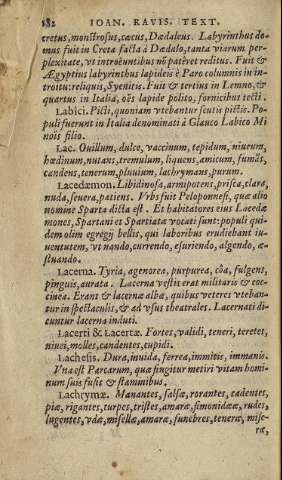 182 IOAN. RAVIS. TEXT.
cretus, monstrosus, cæcus, Dædaleus. Labyrinthus do-
mus fuit in Creta facta à Dædalo, tanta viarum per-
plexitate, vt introëuntibus nō pateret reditus. Fuit &
Ægyptius labyrinthus lapideis è Paro columnis in in-
troitu: reliquis, Syenitis. Fuit & tertius in Lemno, &
quartus in Italia, oēs lapide polito, fornicibus tecti.
Labici. Picti, quoniam vtebantur scutis pictis. Po-
puli fuerunt in Italia denominati à Glauco Labico Mi
nois filio.
Lac. Ouillum, dulce, vaccinum, tepidum, niueum,
hœdinum, nutans, tremulum, liquens, amicum, fumās,
candens, tenerum, pluuium, lachrymans, purum.
Lacedæmon. Libidinosa, armipotens, prisca, clara,
nuda, seuera, patiens. Vrbs fuit Peloponnesi, quæ alio
nomine Sparta dicta est. Et habitatores eius Lacedæ
mones, Spartani et Spartiatæ vocati sunt: populi qui-
dem olim egregij bellis, qui laboribus erudiebant iu-
uentutem, vt nando, currendo, esuriendo, algendo, æ-
stuando.
Lacerna. Tyria, agenorea, purpurea, côa, fulgens,
pinguis, aurata. Lacerna vestis erat militaris & coc-
cinea. Erant & lacernæ albæ, quibus veteres vteban-
tur in spectaculis, & ad vsus theatrales. Lacernati di-
cuntur lacerna induti.
Lacerti & Lacertæ. Fortes, validi, teneri, teretet,
niuei, molles, candentes, cupidi.
Lachesis. Dura, inuida, ferrea, immitis, immanis.
Vna est Parcarum, quæ fingitur metiri vitam homi-
num suis fusis & staminibus.
Lachrymæ. Manantes, salsæ, rorantes, cadentes,
piæ, rigantes, turpes, tristes, amaræ, simonidææ, rudes,
lugentes, vdæ, misellæ, amaræ, funebres, teneræ, mise-
ræ,